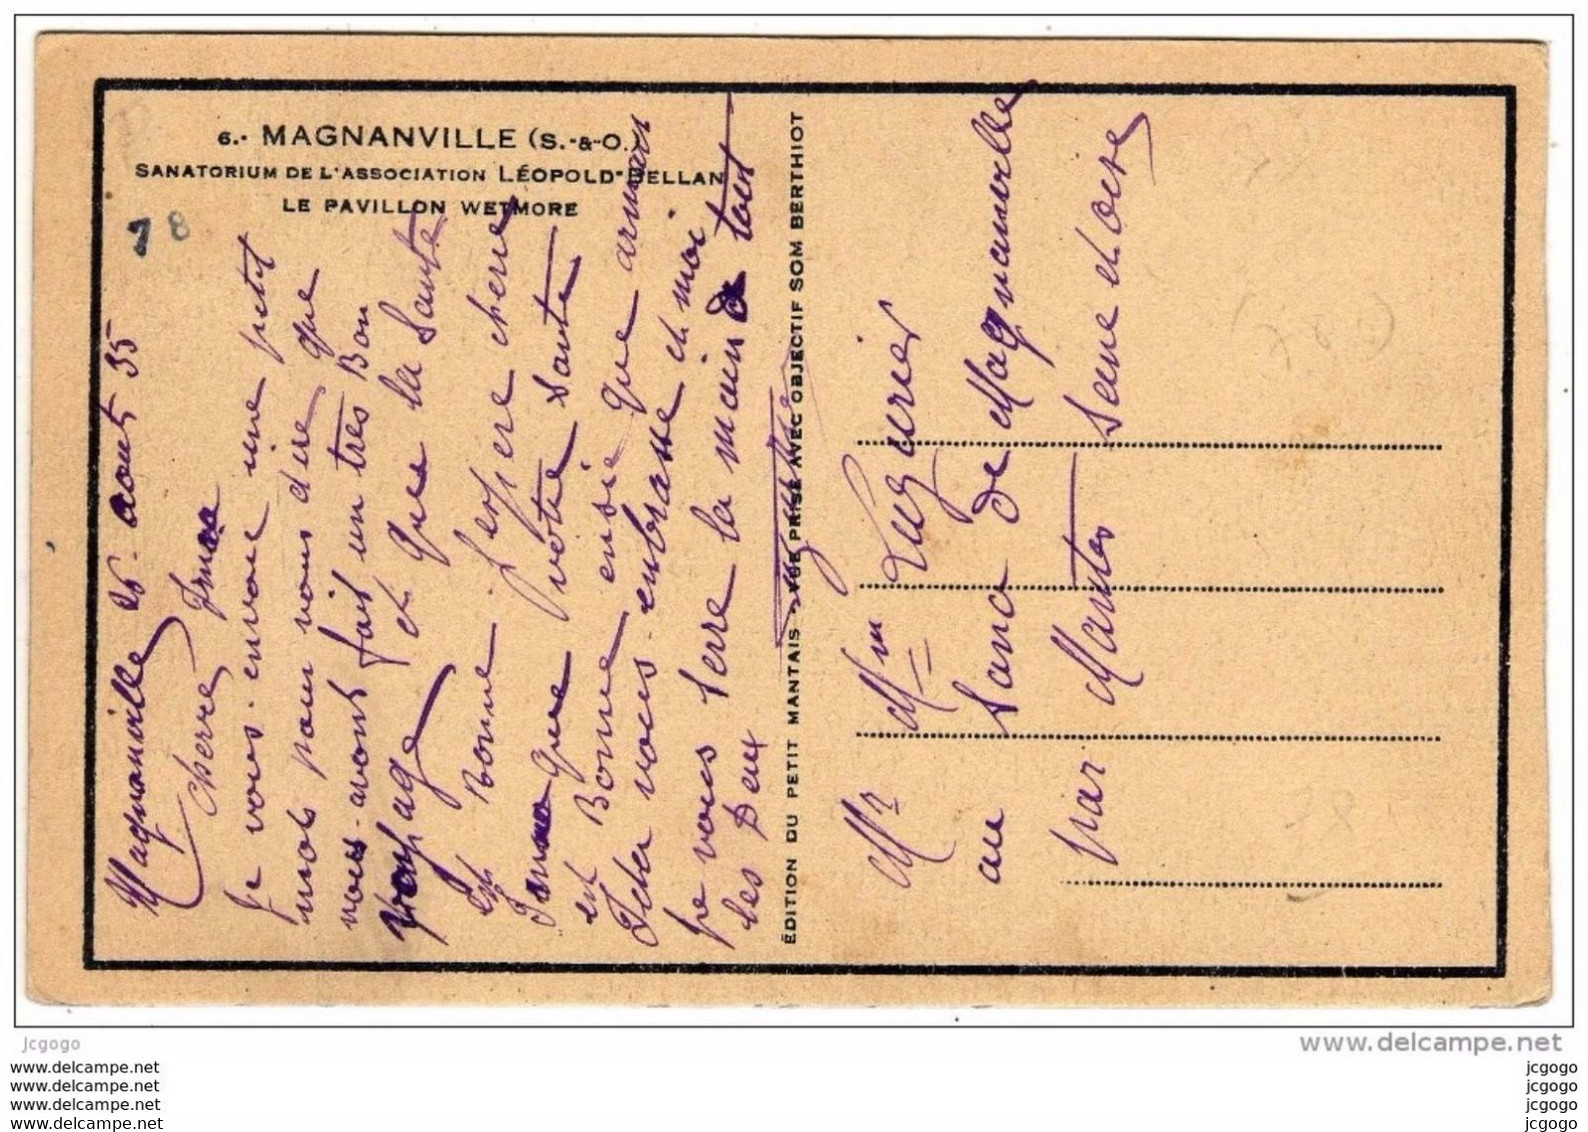 6.- MAGNANVILLE (S.-&-O.)
SANATORIUM DE L'ASSOCIATION LÉOPOLD-BELLAN
LE PAVILLON WETMORE
78
Magnanville 26 aout 35
Cherre
je vous envoie une petit
mots pour vous dire que
nous avons fait un tres Bon
voyage et que la Sante
est Bonne J'espere cherre
que votre Sante
est Bonne ensie que
vous enbrasse et moi
je vous Serre la main a tout
les Deux
ÉDITION DU PETIT MANTAIS - VUE PRISE AVEC OBJECTIF SOM BERTHIOT
Mr Mm
au Sana de Magnanville
par Mantes Seine et Oise
jcgogo
www.delcampe.net
www.delcampe.net
www.delcampe.net
www.delcampe.net
www.delcampe.net
jcgogo
jcgogo
jcgogo
jcgogo